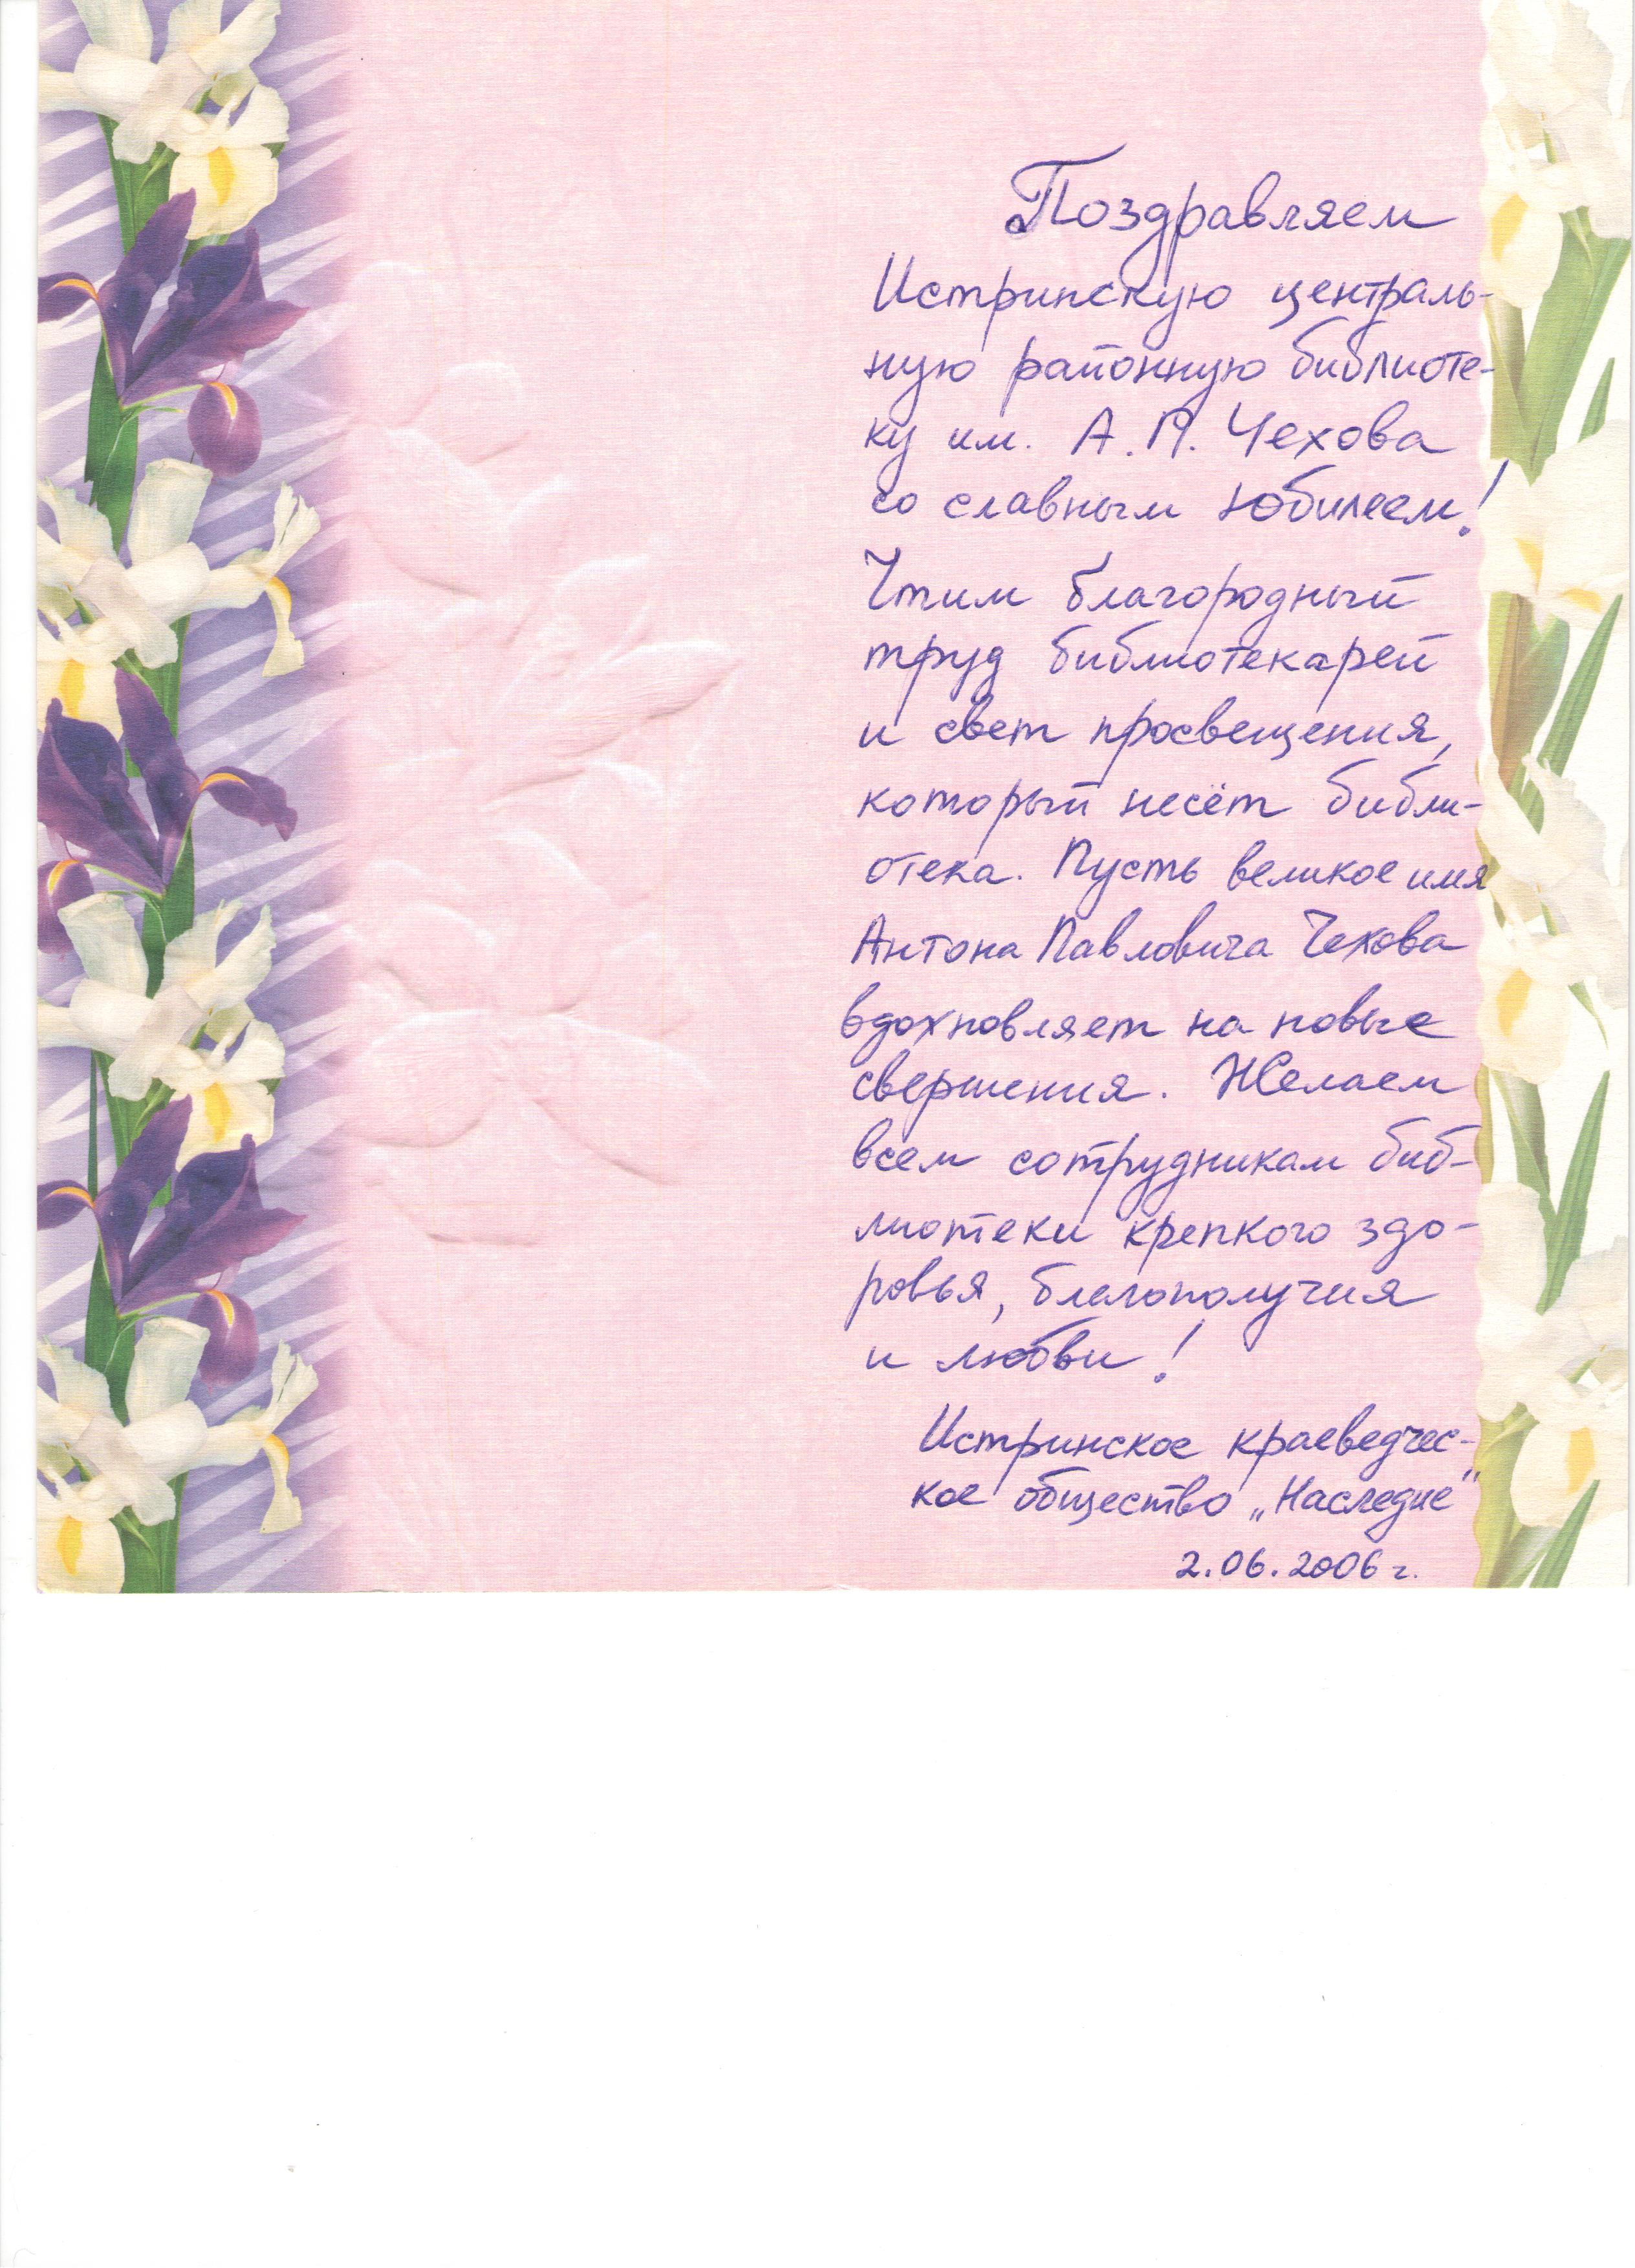 Поздравляем
Истринскую централь-
ную районную библиоте-
ку им. А.П. Чехова
со славным юбилеем!
Чтим благородный
труд библиотекарей
и свет просвещения,
который несёт библи-
отека. Пусть великое имя
Антона Павловича Чехова
вдохновляет на новые
свершения. Желаем
всем сотрудникам биб-
лиотеки крепкого здо-
ровья, благополучия
и любви!
Истринское краеведчес-
кое общество „Наследие"
2.06.2006 г.